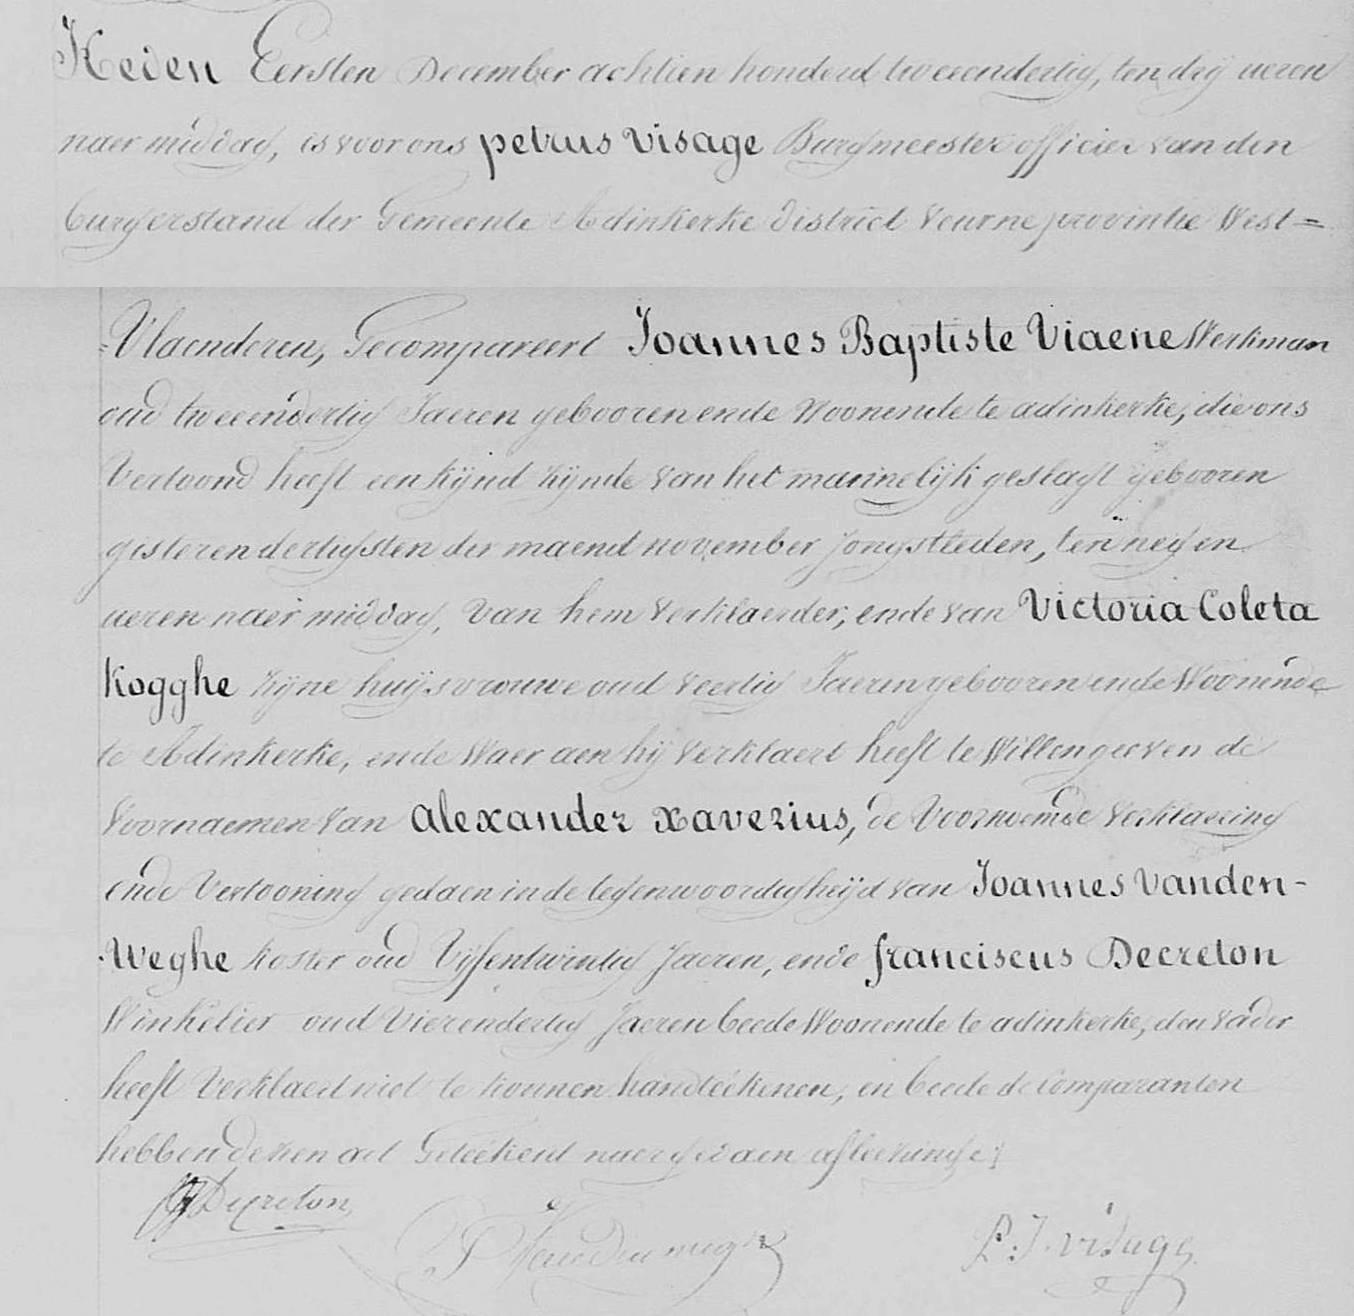 Heden Eersten December achtien honderd tweeendertig, ten drij ueren
naer middag, is voor ons petrus Visage Burgmeester officier van den
burgerstand der Gemeente Adinkerke district Veurne provintie West=
=Vlaenderen, Gecompareert Joannes Baptiste Viaene Werkman
oud tweeendertig Jaeren gebooren ende Woonende te adinkerke, die ons
Vertoond heeft een kijnd zijnde van het mannelijk geslagt gebooren
gisteren dertigsten der maend november jongstleden, ten negen
ueren naer middag, Van hem Verklaerder, ende van Victoria Coleta
Kogghe zijne huijsvrouwe oud veertig Jaeren gebooren ende Woonende
te Adinkerke, ende Waer aen hij verklaert heeft te Willen geeven de
Voornaemen Van alexander xaverius, de Voornoemde Verklaering
ende Vertooning gedaen in de tegenwoordigheijd van Joannes Vanden-
-Weghe koster oud Vijfentwintig Jaeren, ende franciscus Decreton
Winkelier oud Vierendertig Jaeren beede Woonende te adinkerke, den vader
heeft Verklaert niet te konnen handteekenen, en beede de Comparanten
hebben dezen act Geteekent naer gedaen aflezinge
Decreton
P. J. Visage